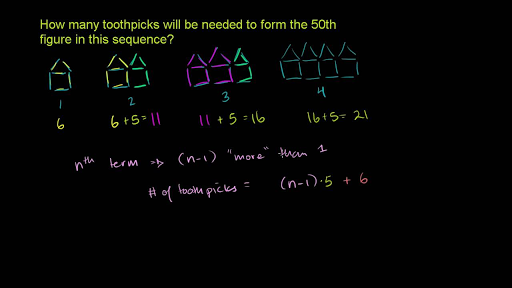 How many toothpicks will be needed to form the 50th
figure in this sequence?
1 2 3 4
6 6+5=11 11+5=16 16+5=21
nth term => (n-1) "more" than 1
# of toothpicks = (n-1)·5 + 6